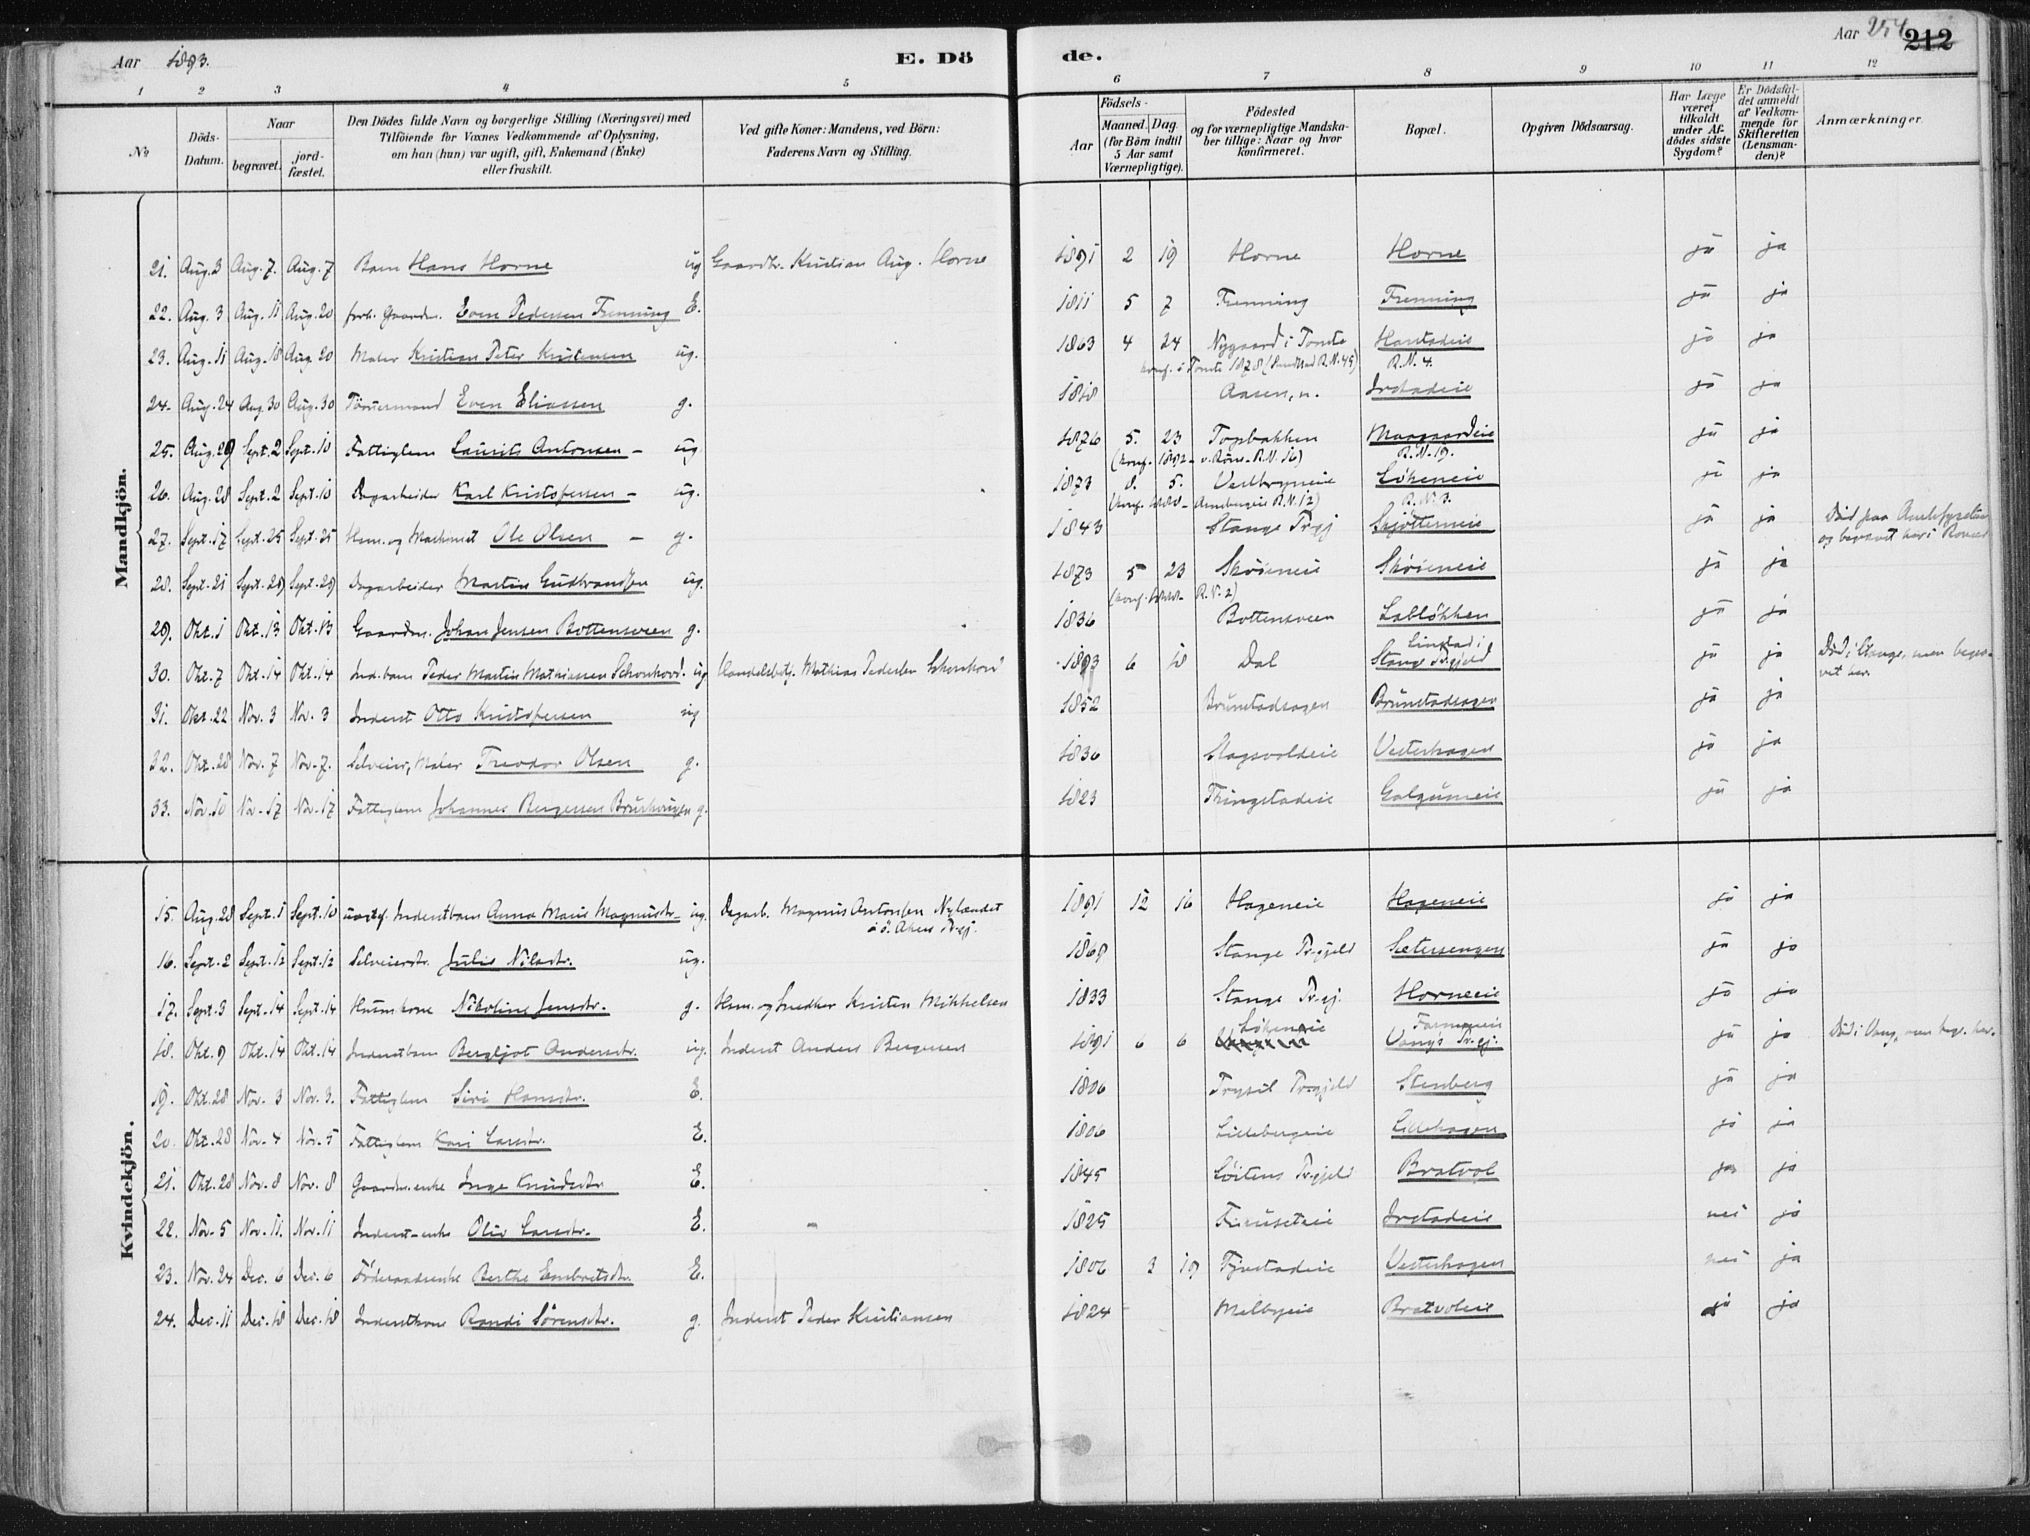 Aar 1893. E. Dö de. Aar 254 212
1 2 3 4 5 6 7 8 9 10 11 12
No
Döds-Datum.
Naar
begravet.
jord-fæstet.
Den Dödes fulde Navn og borgerlige Stilling (Næringsvei) med
Tilföiende for Voxnes Vedkommende af Oplysning,
om han (hun) var ugift, gift, Enkemand (Enke)
eller fraskilt.
Ved gifte Koner: Mandens, ved Börn:
Faderens Navn og Stilling.
Födsels-
Aar
Maaned. Dag
(for Börn indtil
5 Aar samt
Værnepligtige).
Födested
og for værnepligtige Mandska-
ber tillige: Naar og hvor
konfirmeret.
Bopæl.
Opgiven Dödsaarsag.
Har Læge
været
tilkaldt
under Af-
dödes sidste
Sygdom?
Er Dödsfal-
det anmeldt
af Vedkom-
mende for
Skifteretten
(Lensman-
den)?
Anmærkninger.
Mandkjön.
21. Aug. 3 Aug. 7. Aug. 7 Barn Hans Horne ug Gaardbr. Kristian Aug. Horne 1891 2 19 Horne Horne ja ja
22. Aug. 3 Aug. 11 Aug. 20 forh. Gaardm. Even Pedersen Frenning E. 1811 5 7 Frenning Frenning ja ja
23. Aug. 11 Aug. 18 Aug. 20 Maler Kristian Peter Kristensen ug. 1863 4 24 Nygaard i Tomte ja ja
konf. i Tomte 1878 R.N. 45) R.N. 4.
24. Aug. 24 Aug. 30 Aug. 30 Tömmermand Even Eliassen g. 1818 Aasen, n. Irstadeie ja ja
25. Aug. 29 Sept. 2 Sept. 10 Fattiglem Laurits Antonsen - ug 1876 5. 23 Topbakken ja ja
(konf. 1892 - R.N. 16) R.N. 19.
26. Aug. 28 Sept. 2 Sept. 10 Dagarbeider Karl Kristofersen - ug. 1873 8. 5. Lökeneie ja ja
(konf. R.N. 12) R.N. 3.
27. Sept. 17 Sept. 25 Sept. 25 Husm. og Maskinist Ole Olsen - g. 1843 Stange Prgj ja ja Död paa
og begravet her i
28. Sept. 21 Sept. 29 Sept. 29 Dagarbeider Martin Gudbrandsen ug. 1873 5 23 Sköieneie Sköieneie ja ja
(konf. R.N. 2)
29. Okt. 1 Okt. 13 Okt. 13 Gaardm. Johan Jensen Bottensveen g. 1836 Bottensveen Labløkken ja ja
30. Okt. 7 Okt. 14 Okt. 14 Ind. barn Peder Martin Mathiassen Schonhovd. ug Handelsbetj. Mathias Pedersen Schonhovd 1893 6 18 Dal Stange Prgjeld ja ja Död i Stange, men begra-
vet her
31. Okt. 22 Nov. 3 Nov. 3 Inderst Otto Kristofersen ug 1852 Brunstadhagen Brunstadhagen ja ja
32. Okt. 28 Nov. 7 Nov. 7. Selveier, Maler Treodor Olsen g. 1836 Slagsvoldeie Vesterhagen ja ja
33. Nov. 10 Nov. 17 Nov. 17 Fattiglem Johannes Bergersen g. 1823 Tringstadeie Galguneie ja ja
Kvindekjön.
15. Aug. 28 Sept. 1 Sept. 10 uægtef. Inderstbarn Anna Marie Magnusdtr. ug. Dagarb. Magnus Antonsen Nylændet
i ö. Aker Prgj. 1891 12 16 Hageneie Hageneie ja ja
16. Sept. 2 Sept. 12 Sept. 12 Selveierdtr. Julie Nilsdtr. ug. 1868 Stange Prgjeld Sætersengen ja ja
17. Sept. 3 Sept. 14 Sept. 14 Husmkone Nikoline Jensdtr. g. Husm. og Snedker Kristen Mikkelsen 1833 Stange Prgj. Horneeie ja ja
18. Okt. 9 Okt. 14 Okt. 14 Inderstbarn Bergljot Andersdtr. ug. Inderst Anders Bergersen 1891 6 6 Lökeneie Vangs Prgj. ja ja Död i Vang, men begr. her.
19. Okt. 28 Nov. 3 Nov. 3. Fattiglem Siri Hansdtr. E. 1806 Trysil Prgjeld Stenberg ja ja
20. Okt. 28 Nov. 4 Nov. 5 Fattiglem Kari Larsdtr. E. 1806 Lillebergeie Lillehagen ja ja
21. Okt. 28 Nov. 8 Nov. 8 Gaardm.enke Inge Knudsdtr E. 1845 Löitens Prgjeld Bratvol ja ja
22. Nov. 5 Nov. 11. Nov. 11 Inderst-enke Oliv Larsdtr. E. 1825 Irstadeie nei ja
23. Nov. 24 Dec. 6 Dec. 6 Föderaadsenke Berthe Embretsdtr. E. 1806 3 19 Tjustadeie Vesterhagen nei ja
24. Dec. 11 Dec. 18 Dec. 18 Inderstkone Randi Sörensdtr. g. Inderst Peder Kristiansen 1824 Melbyeie Bratvoleie ja ja